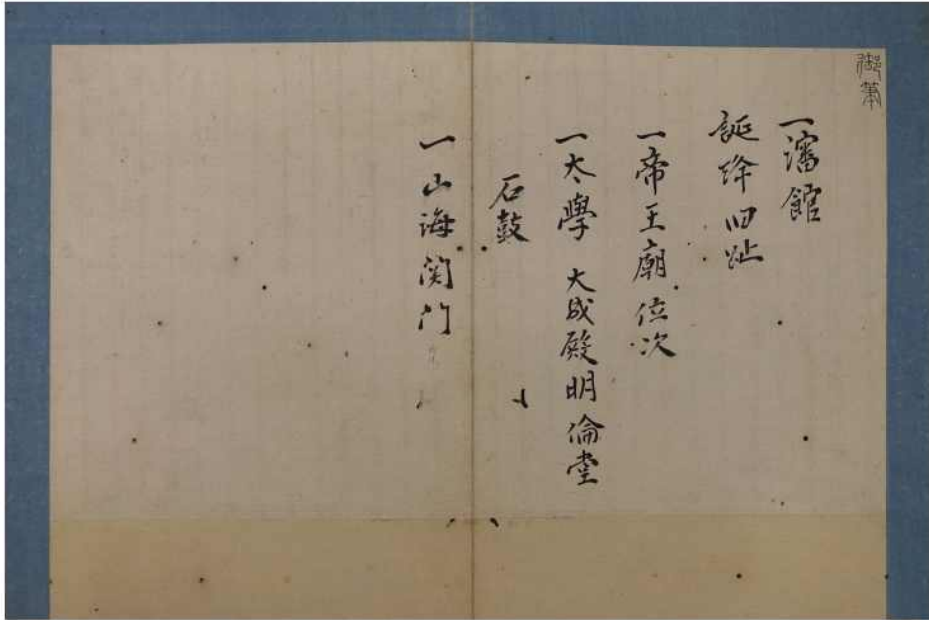 御筆
一瀋館
誕降旧趾
一帝王廟位次
一太學 大成殿明倫堂
石鼓
一山海関門